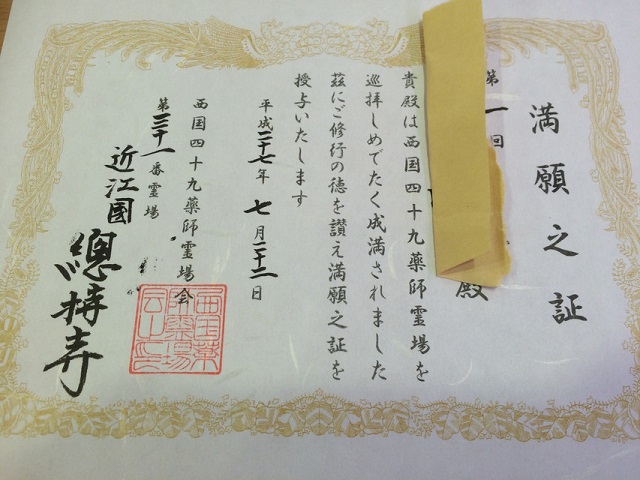 満願之証
第一回
殿
貴殿は西国四十九薬師霊場を
巡拝しめでたく成満されました
茲にご修行の徳を讃え満願之証を
授与いたします
平成二十七年 七月二十二日
西国四十九薬師霊場会
第三十一番霊場
近江國
總持寺